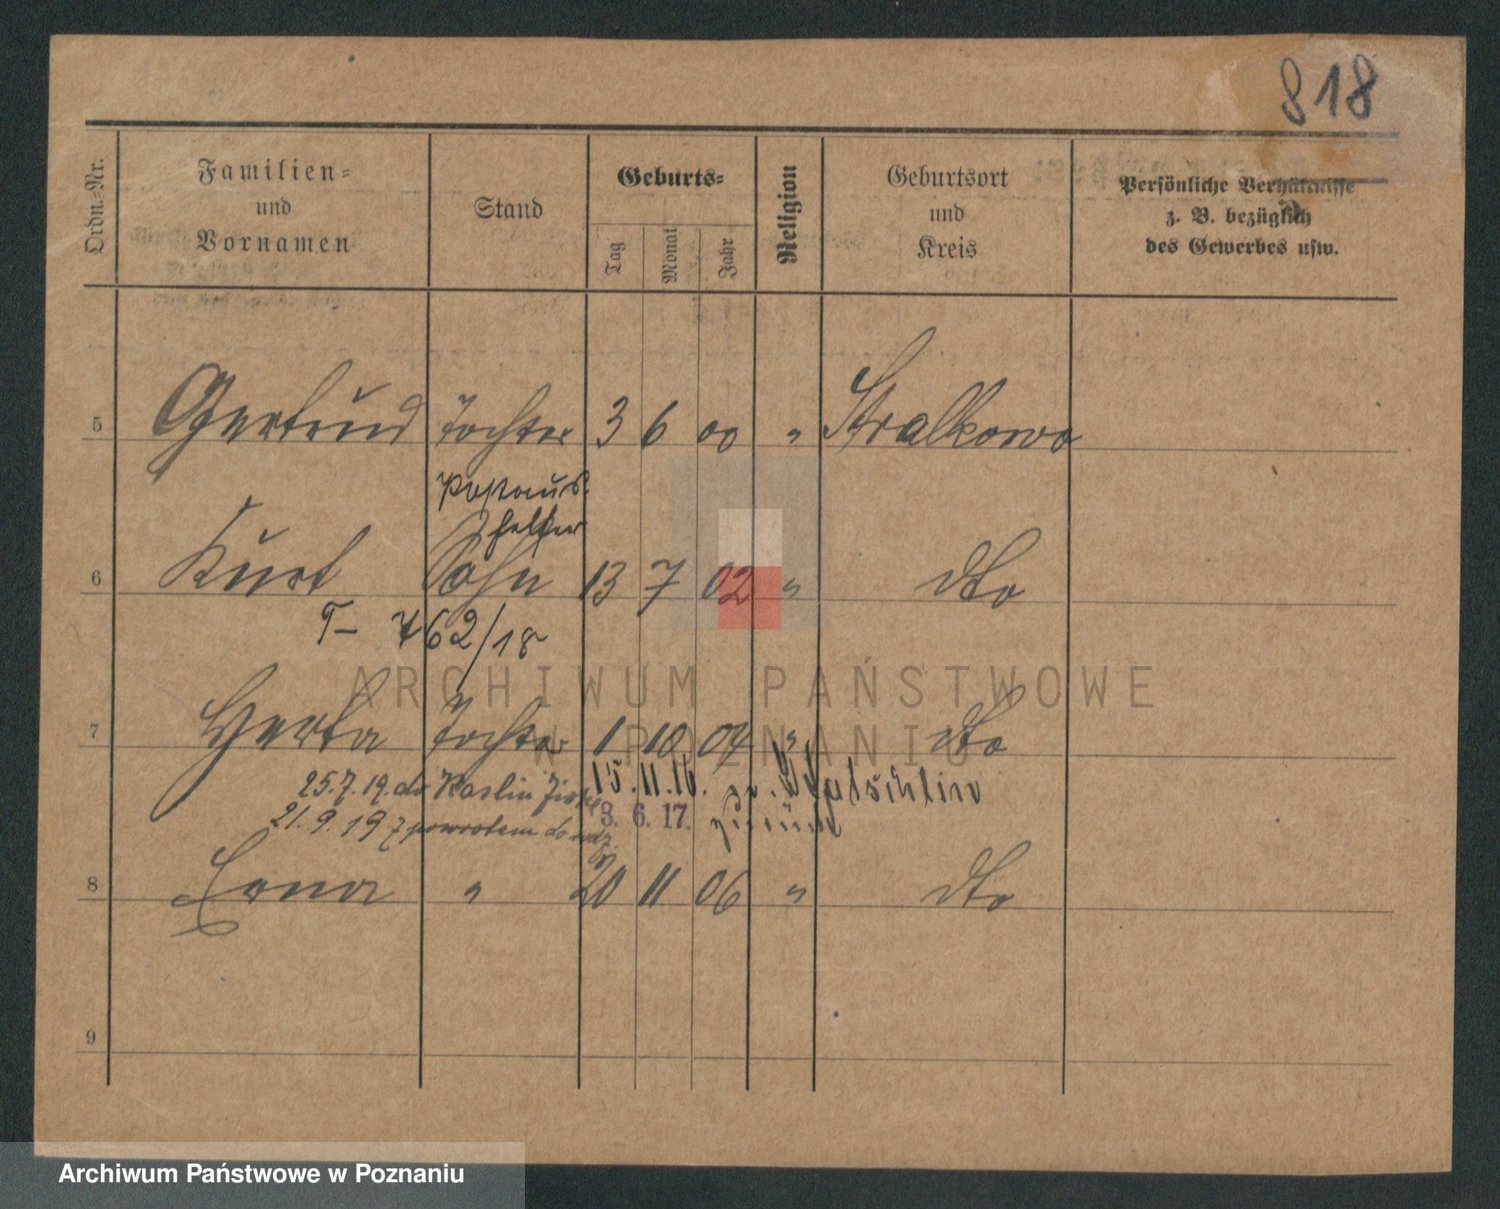 818
Ordn.-Nr.
Familien=
und
Vornamen
Stand
Geburts=
Tag
Monat
Jahr
Religion
Geburtsort
und
Kreis
Persönliche Verhältnisse
z. B. bezüglich
des Gewerbes usw.
5 Gertrud Tochter 3 6 00 " Stralkowo
Postaus
helfer
6 Kurt Sohn 13 7 02 " dto
T- 762/18
7 Herta Tochter 1 10 04 " dto
25.7.19. do Kaslin 15.11.16.
21.9.19 z powrotem do 3. 6. 17.
8 Erna " 20 11 06 " dto
9
ARCHIWUM PAŃSTWOWE
W POZNANIU
Archiwum Państwowe w Poznaniu